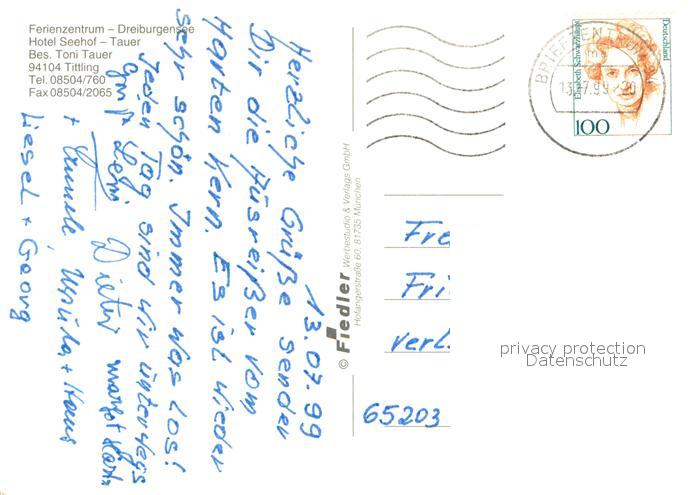 Ferienzentrum – Dreiburgensee
Hotel Seehof – Tauer
Bes. Toni Tauer
94104 Tittling
Tel. 08504/760
Fax 08504/2065
13.07.99
Herzliche Grüße sender
Dir die Ausreißer vom
Harten Kern. Es ist wieder
sehr schön. Immer was los!
Jeden Tag sind wir unterwegs
Leni Dieter Margot
+ Ursula + Hans
Liesel + Georg
© Fiedler Werbestudio & Verlags GmbH
Hofangerstraße 60, 81735 München
BRIEFZENTRUM
13.7.99-20
Deutschland
Elisabeth Schwarzhaupt
100
Fre
Fri
verl.
65203
privacy protection
Datenschutz